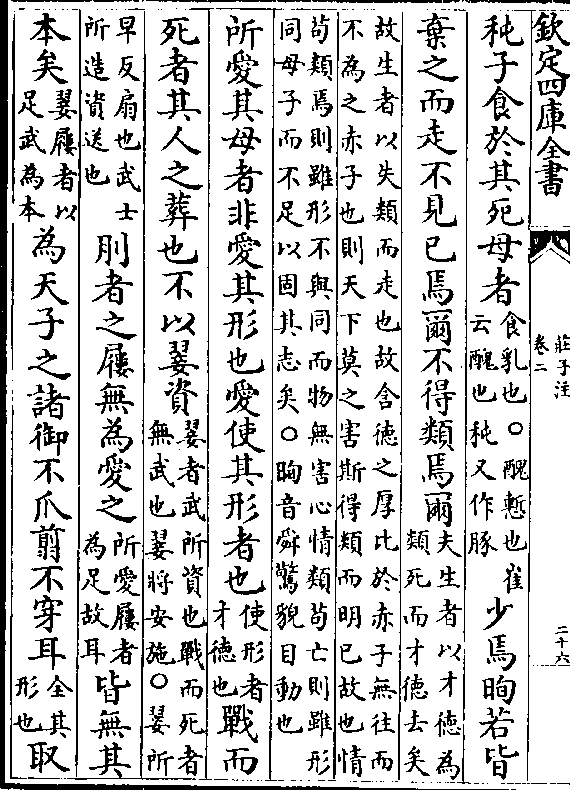 欽定四庫全書
莊子注
卷二
二十六
㹠子食於其死母者
食乳也○醜慙也崔
云醜也㹠又作豚
少焉眴若皆
棄之而走不見已焉爾不得類焉爾
夫生者以才德為
類死而才德去矣
故生者以失類而走也故含德之厚比於赤子無往而
不為之赤子也則天下莫之害斯得類而明已故也情
茍類焉則雖形不與同而物無害心情類茍亡則雖形
同母子而不足以固其志矣○眴音舜驚貌目動也
所愛其母者非愛其形也愛使其形者也
使形者
才德也
戰而
死者其人之葬也不以翣資
翣者武所資也戰而死者
無武也翣將安施○翣所
早反扇也武士
所造資送也
刖者之屨無為愛之
所愛屨者
為足故耳
皆無其
本矣
翣屨者以
足武為本
為天子之諸御不爪翦不穿耳
全其
形也
取